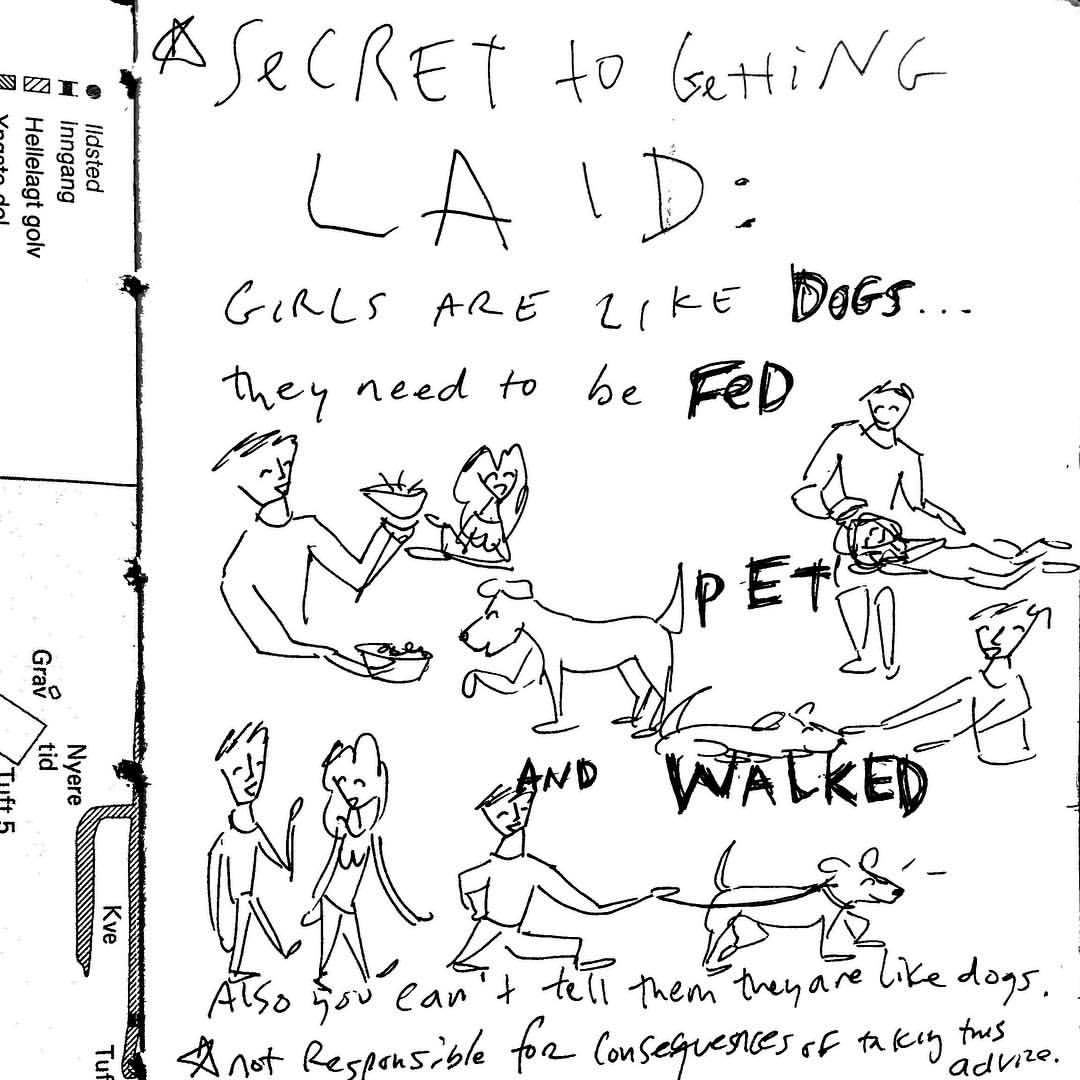 SeCRET to GettiNG
LAID:
GIRLS ARE LIKE DOGS...
they need to be FeD
PEt
AND WALKED
Also you can't tell them they are like dogs.
not Responsible for Consequences of taking this
advize.
Ildsted
inngang
Hellelagt golv
Grav
Nyere
tid
Tuft 5
Kve